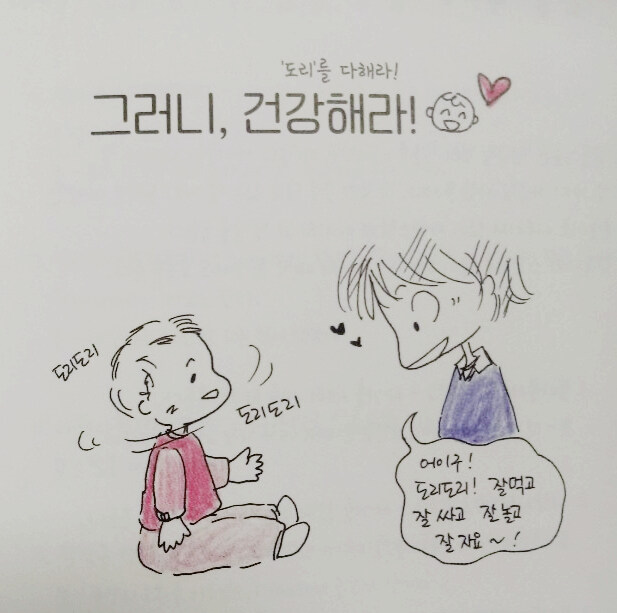 '도리'를 다해라!
그러니, 건강해라!
도리도리
도리도리
어이구!
도리도리! 잘먹고
잘 싸고 잘 놀고
잘 자요~!